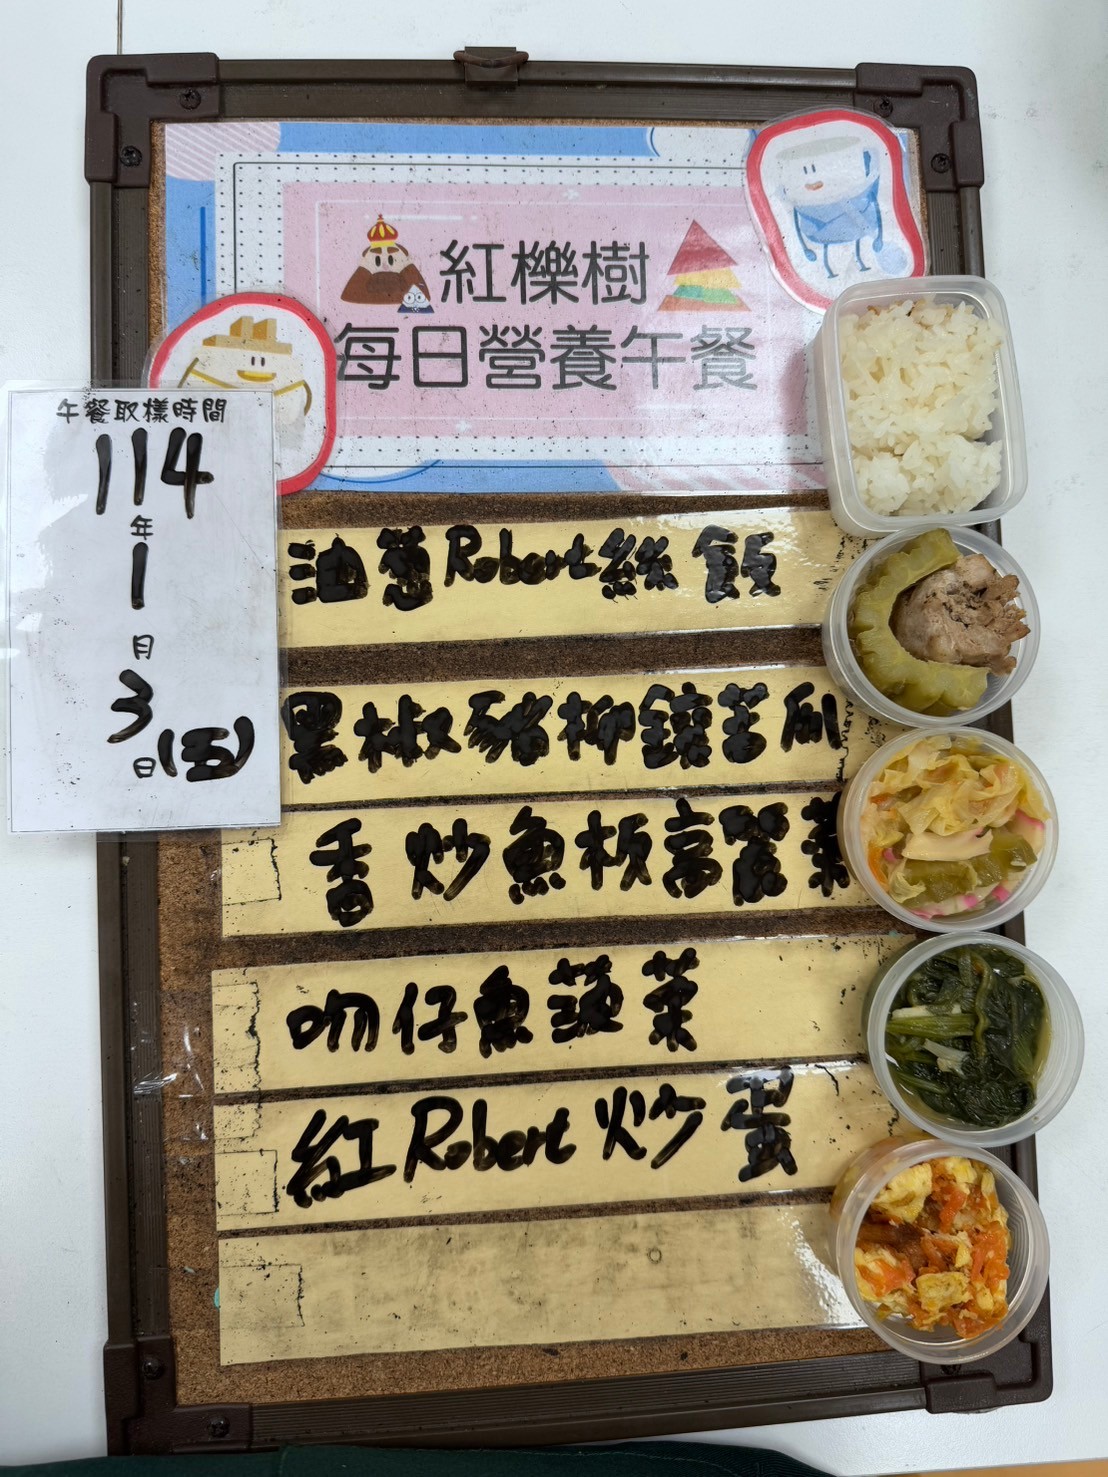 紅櫟樹
每日營養午餐
午餐取樣時間
114
年
1
月
3
日(五)
油蔥Robert絲飯
黑椒豬柳鑲苦瓜
香炒魚板高麗菜
吻仔魚菠菜
紅Robert炒蛋